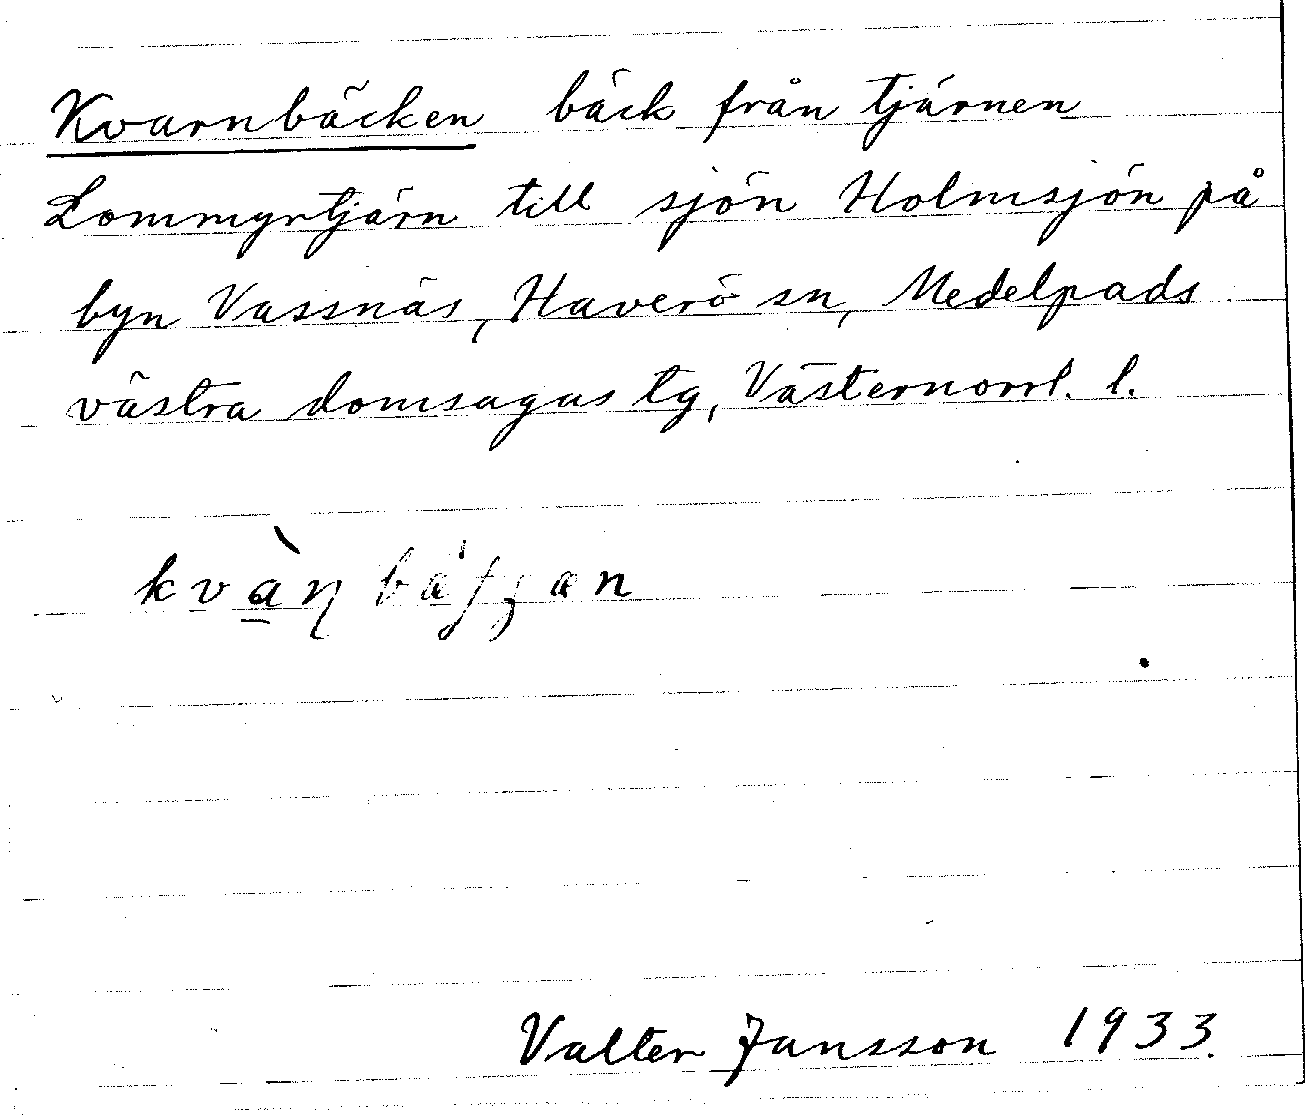 Kvarnbäcken bäck från tjärnen
Lommyrtjärn till sjön Holmsjön på
byn Vassnäs, Haverö sn, Medelpads
västra domsagas tg, Västernorrl. l.
Valter Jansson 1933.